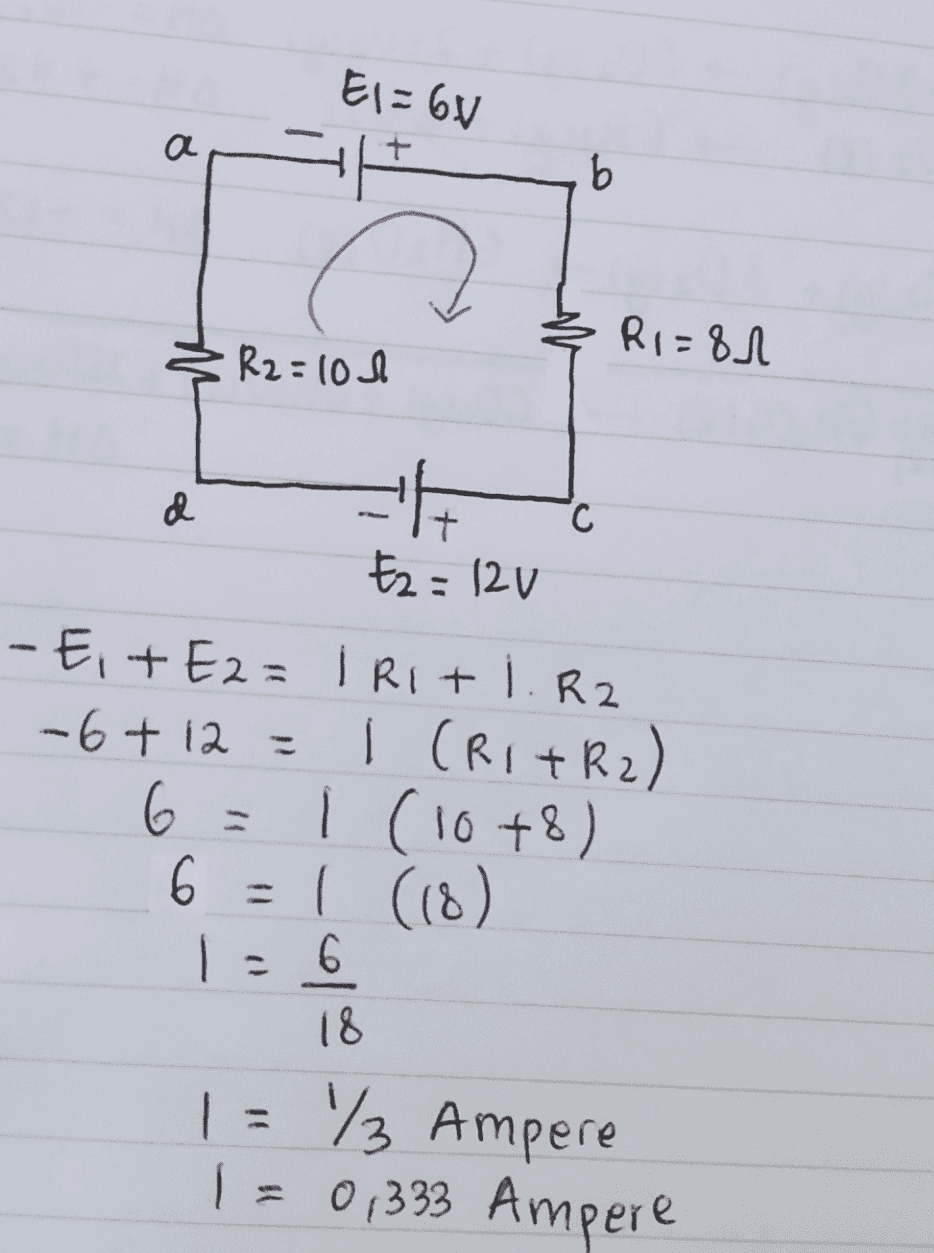 E1 = 6V
a - + b
R1 = 8Ω
R2 = 10Ω
d - + c
E2 = 12V
- E1 + E2 = I R1 + I. R2
-6 + 12 = I (R1 + R2)
6 = I (10 + 8)
6 = I (18)
I = 6/18
I = 1/3 Ampere
I = 0,333 Ampere